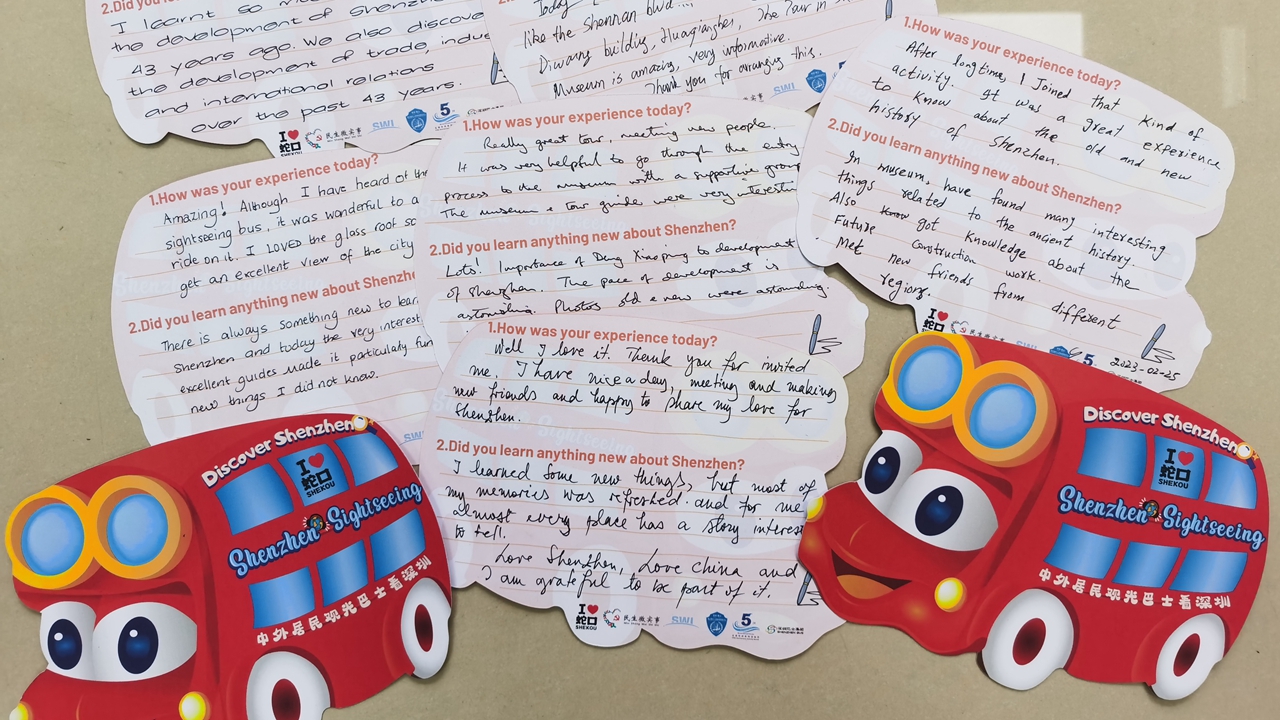 2.Did you l
I learnt so m
the development of Shenzh
43 years ago. We also discove
the development of trade, indus
and international relations
over the past 43 years.
I
蛇口
SHEKOU
民生微实事
SWI
5
Today
like the Shennan blvd...
Diwang building, Huaqiangbei, The Tour in
Museum is amazing, very informative.
Thank you for arranging this.
SWI
5
1.How was your experience today?
After long time, I Joined that kind of
activity. It was a great experience
to know about the old and new
history of Shenzhen.
2.Did you learn anything new about Shenzhen?
In museum, have found many interesting
things related to the ancient history.
Also got knowledge about the
Future construction work.
Met new friends from different
regions.
I
蛇口
5
2023-02-25
1.How was your experience today?
Amazing! Although I have heard of th
sightseeing bus, it was wonderful to a
ride on it. I LOVED the glass roof so
get an excellent view of the city
2.Did you learn anything new about Shenzhe
There is always something new to
Shenzhen and today the very interest
excellent guides made it particularly fun
new things I did not know.
SWI
1.How was your experience today?
Really great tour, meeting new people.
It was very helpful to go through the entry
process to the museum with a supportive group
The museum & tour guide were very interestin
2.Did you learn anything new about Shenzhen?
Lots! Importance of Deng Xiaoping to development
of Shenzhen. The pace of development is
astonishing. Photos old & new were astounding.
1.How was your experience today?
Well I love it. Thank you for invited
me. I have nice a day, meeting and making
new friends and happy to share my love for
Shenzhen.
2.Did you learn anything new about Shenzhen?
I learned some new things, but most of
my memories was refreshed. and for me
almost every place has a story interest
to tell.
Love Shenzhen, Love China and
I am grateful to be part of it.
I
蛇口
SHEKOU
民生微实事
SWI
5
Discover Shenzhen
I
蛇口
SHEKOU
Shenzhen Sightseeing
中外居民观光巴士看深圳
Discover Shenzhen
I
蛇口
SHEKOU
Shenzhen Sightseeing
中外居民观光巴士看深圳